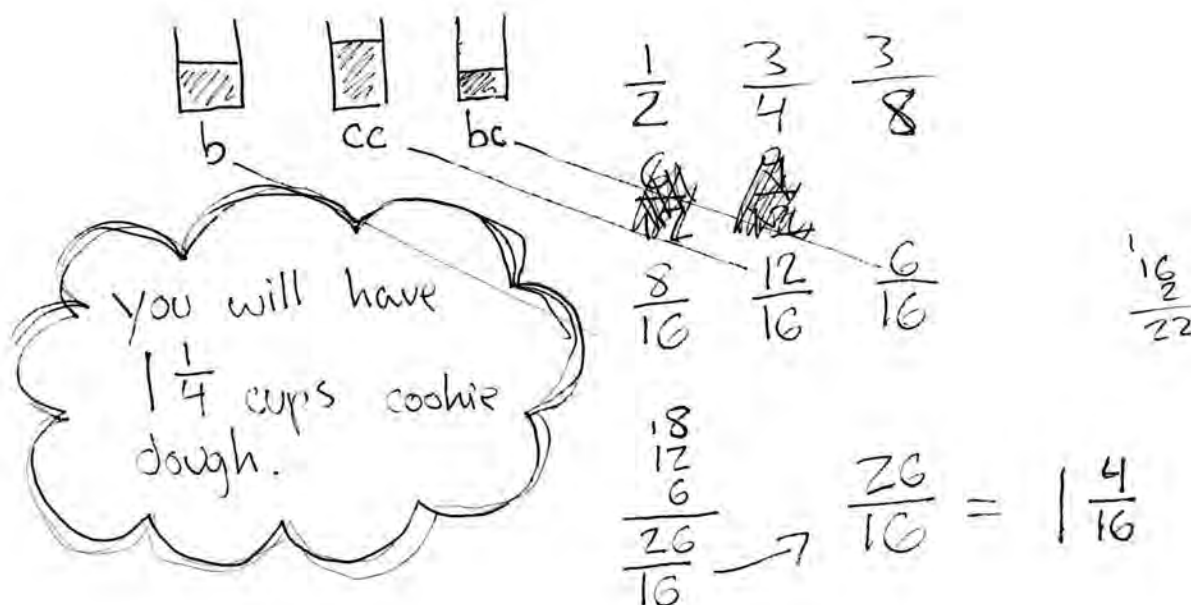 b cc bc
1/2 3/4 3/8
8/16 12/16 6/16
1
16
2
22
you will have
1 1/4 cups cookie
dough.
1 8
12
6
26/16 → 26/16 = 1 4/16